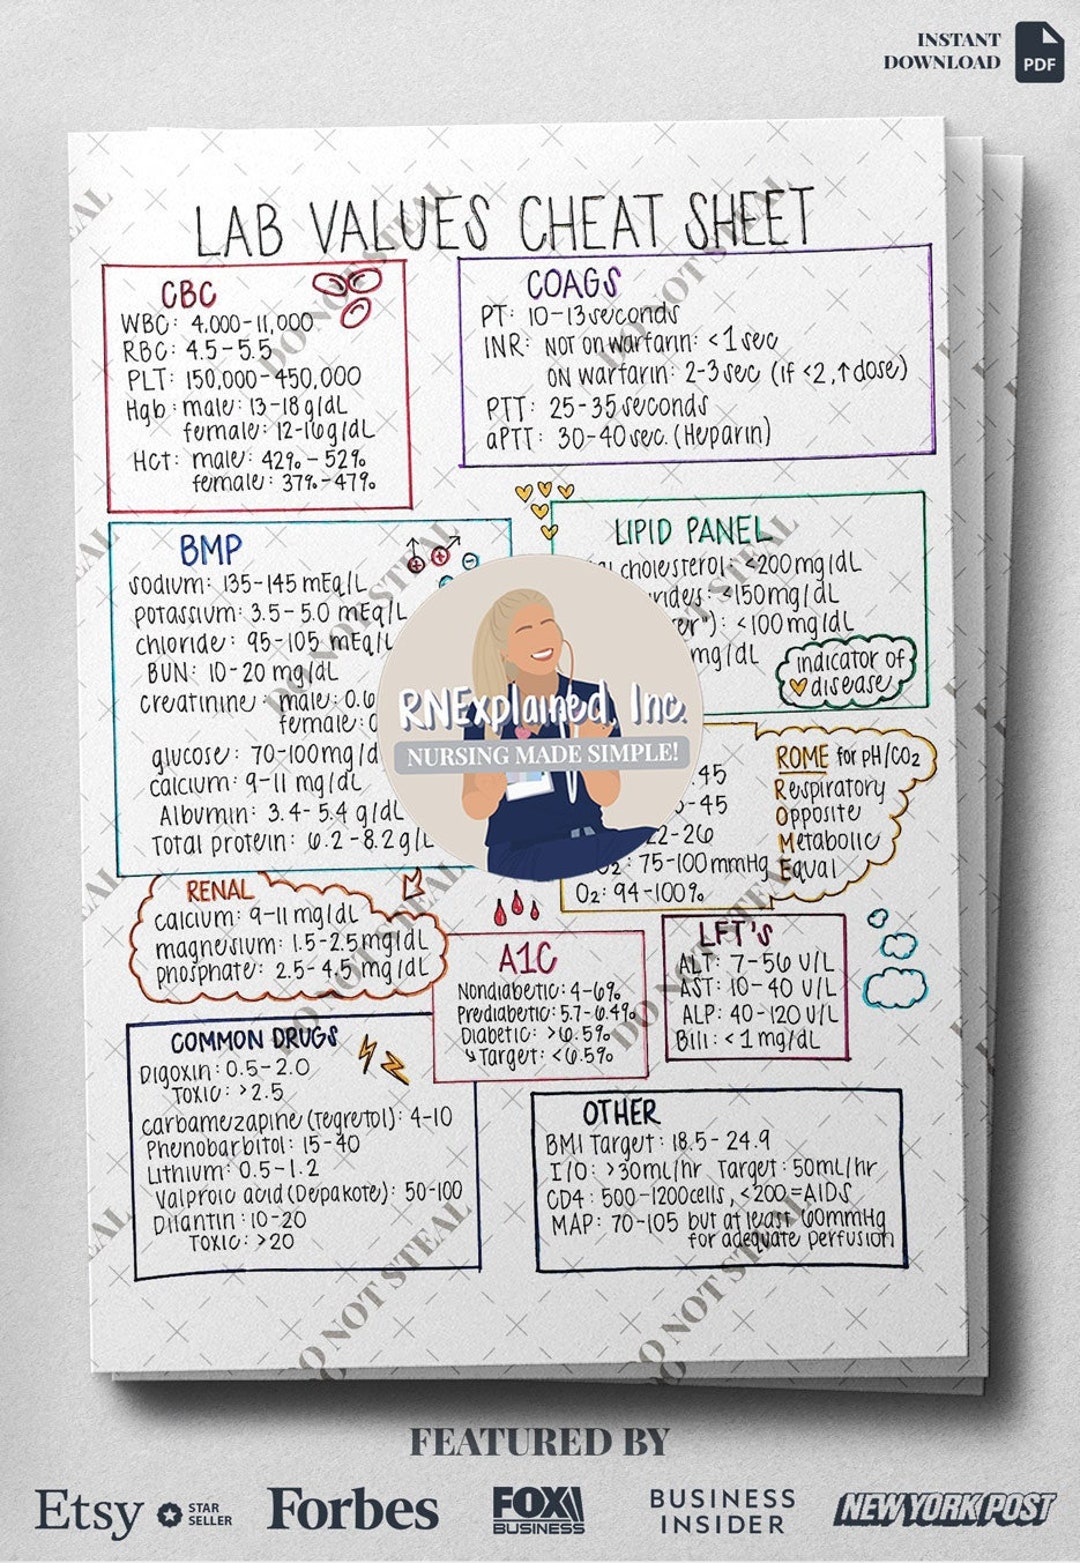 INSTANT
DOWNLOAD
PDF
LAB VALUES CHEAT SHEET
CBC
WBC: 4,000-11,000
RBC: 4.5-5.5
PLT: 150,000-450,000
Hgb: male: 13-18 g/dL
female: 12-16 g/dL
Hct: male: 42% - 52%
female: 37%-47%
COAGS
PT: 10-13 seconds
INR: NOT on warfarin: <1 sec
ON warfarin: 2-3 sec (if <2, ↑ dose)
PTT: 25-35 seconds
aPTT: 30-40 sec. (Heparin)
BMP
sodium: 135-145 mEq/L
potassium: 3.5-5.0 mEq/L
chloride: 95-105 mEq/L
BUN: 10-20 mg/dL
creatinine: male: 0.6
female: 0
glucose: 70-100 mg/d
calcium: 9-11 mg/dL
Albumin: 3.4-5.4 g/dL
Total protein: 6.2-8.2 g/L
LIPID PANEL
cholesterol: <200 mg/dL
<150 mg/dL
<100 mg/dL
mg/dL
indicator of
disease
RNExplained, Inc.
NURSING MADE SIMPLE!
.45
-45
22-26
75-100 mmHg
O2: 94-100%
ROME for pH/CO2
Respiratory
Opposite
Metabolic
Equal
RENAL
calcium: 9-11 mg/dL
magnesium: 1.5-2.5 mg/dL
phosphate: 2.5-4.5 mg/dL
A1C
Nondiabetic: 4-6%
Prediabetic: 5.7-6.4%
Diabetic: >6.5%
↳ Target: <6.5%
LFT's
ALT: 7-56 U/L
AST: 10-40 U/L
ALP: 40-120 U/L
Bili: <1 mg/dL
COMMON DRUGS
Digoxin: 0.5-2.0
TOXIC: >2.5
carbamezapine (Tegretol): 4-10
Phenobarbitol: 15-40
Lithium: 0.5-1.2
Valproic acid (Depakote): 50-100
Dilantin: 10-20
TOXIC: >20
OTHER
BMI Target: 18.5-24.9
I/O: >30mL/hr Target: 50mL/hr
CD4: 500-1200cells, <200=AIDS
MAP: 70-105 but at least 60mmHg
for adequate perfusion
DO NOT STEAL
FEATURED BY
Etsy STAR SELLER
Forbes
FOX BUSINESS
BUSINESS INSIDER
NEW YORK POST